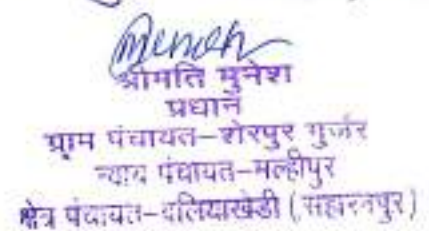 श्रीमति मुनेश
प्रधान
ग्राम पंचायत-शेरपुर गुर्जर
न्याय पंचायत-मल्हीपुर
क्षेत्र पंचायत-बलियाखेडी (सहारनपुर)